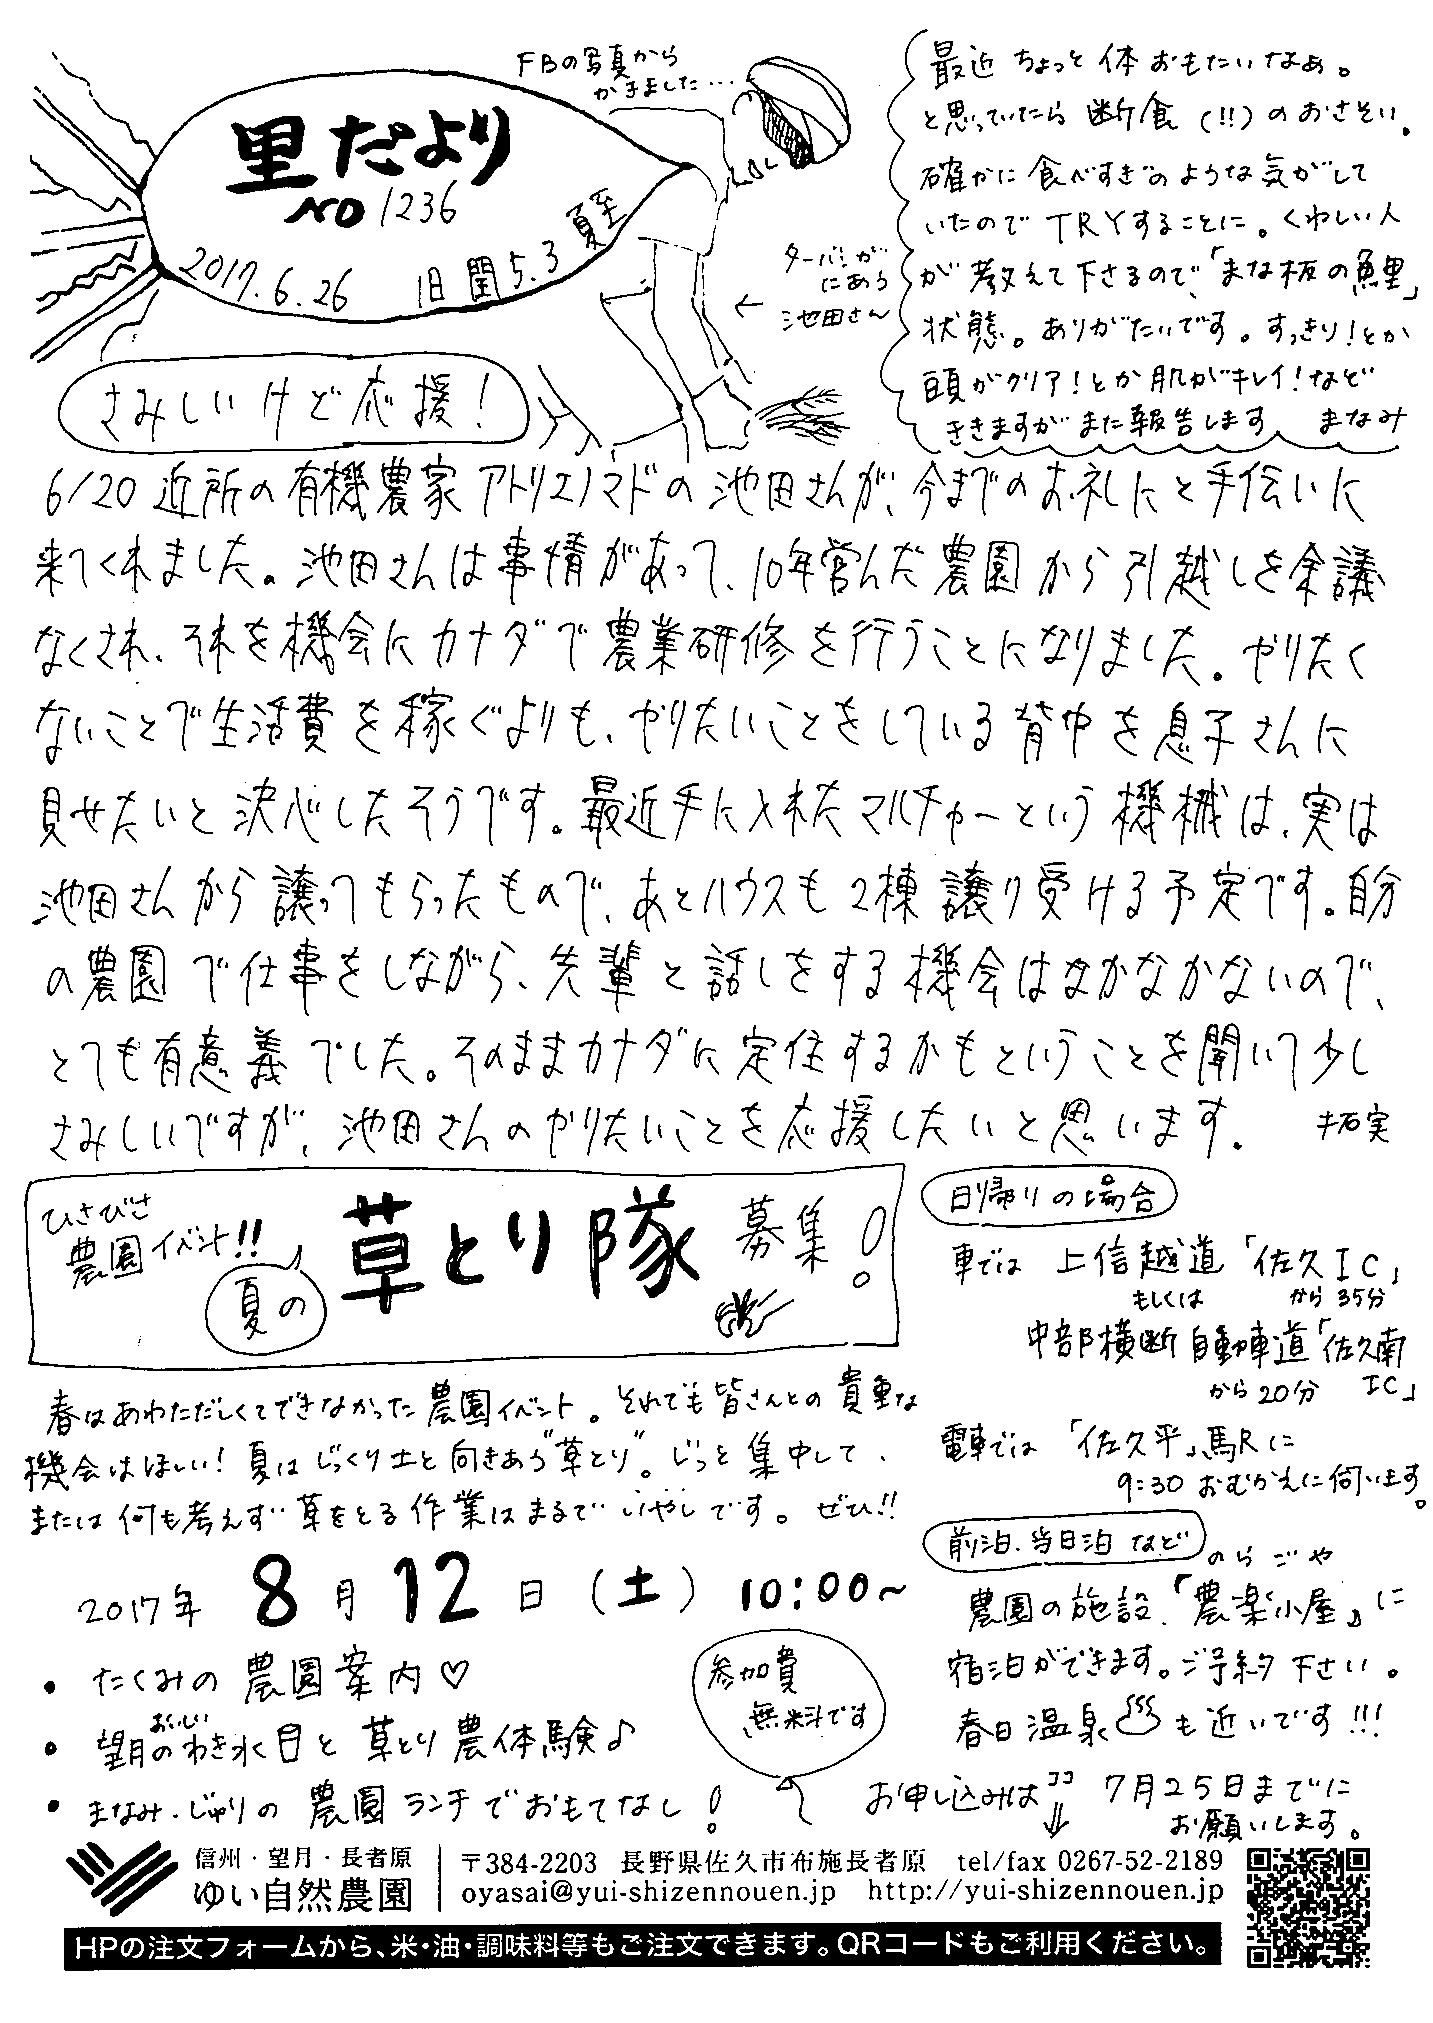 里だより
NO 1236
2017.6.26 旧閏5.3 夏至
FBの写真から
かきました…
ターバンが
にあう
池田さん
最近 ちょっと 体 おもたいなぁ。
と思っていたら 断食 (!!) のおさそい。
確かに 食べすぎのような気がして
いたので TRYすることに。くわしい人
が 教えて下さるので、「まな板の鯉」
状態。ありがたいです。すっきり!とか
頭がクリア!とか 肌がキレイ!など
ききますが また報告します まなみ
さみしいけど応援!
6/20 近所の有機農家 アトリエノマドの 池田さんが、今までのお礼にと手伝いに
来てくれました。池田さんは事情があって、10年営んだ農園から引越しを余議
なくされ、それを機会にカナダで農業研修を行うことになりました。やりたく
ないことで生活費を稼ぐよりも、やりたいことをしている背中を息子さんに
見せたいと決心したそうです。最近手に入れたマルチャーという機械は、実は
池田さんから譲ってもらったもので、あとハウスも2棟譲り受ける予定です。自分
の農園で仕事をしながら、先輩と話しをする機会はなかなかないので、
とても有意義でした。そのままカナダに定住するかもということを聞いて少し
さみしいですが、池田さんのやりたいことを応援したいと思います。 拓実
ひさびさ
農園イベント!!
夏の
草とり隊 募集!
春はあわただしくてできなかった農園イベント。それでも皆さんとの貴重な
機会はほしい! 夏はじっくり土と向きあう"草とり"。じっと集中して、
または何も考えず草をとる作業はまるでいやしです。ぜひ!!
2017年 8月12日(土) 10:00~
・たくみの農園案内♡
おいしい
・望月のわき水と草とり農体験♪
・まなみ・じゅりの農園ランチでおもてなし!
参加費
無料です
日帰りの場合
車では 上信越道「佐久IC」
もしくは から35分
中部横断自動車道「佐久南
から20分 IC」
電車では「佐久平」駅Rに
9:30 おむかえに伺います。
前泊、当日泊 など
のらごや
農園の施設、「農楽小屋」に
宿泊ができます。ご予約下さい。
春日温泉♨も近いです!!!
お申し込みは ココ 7月25日までに
お願いします。
信州・望月・長者原
ゆい自然農園
〒384-2203 長野県佐久市布施長者原 tel/fax 0267-52-2189
oyasai@yui-shizennouen.jp http://yui-shizennouen.jp
HPの注文フォームから、米・油・調味料等もご注文できます。QRコードもご利用ください。